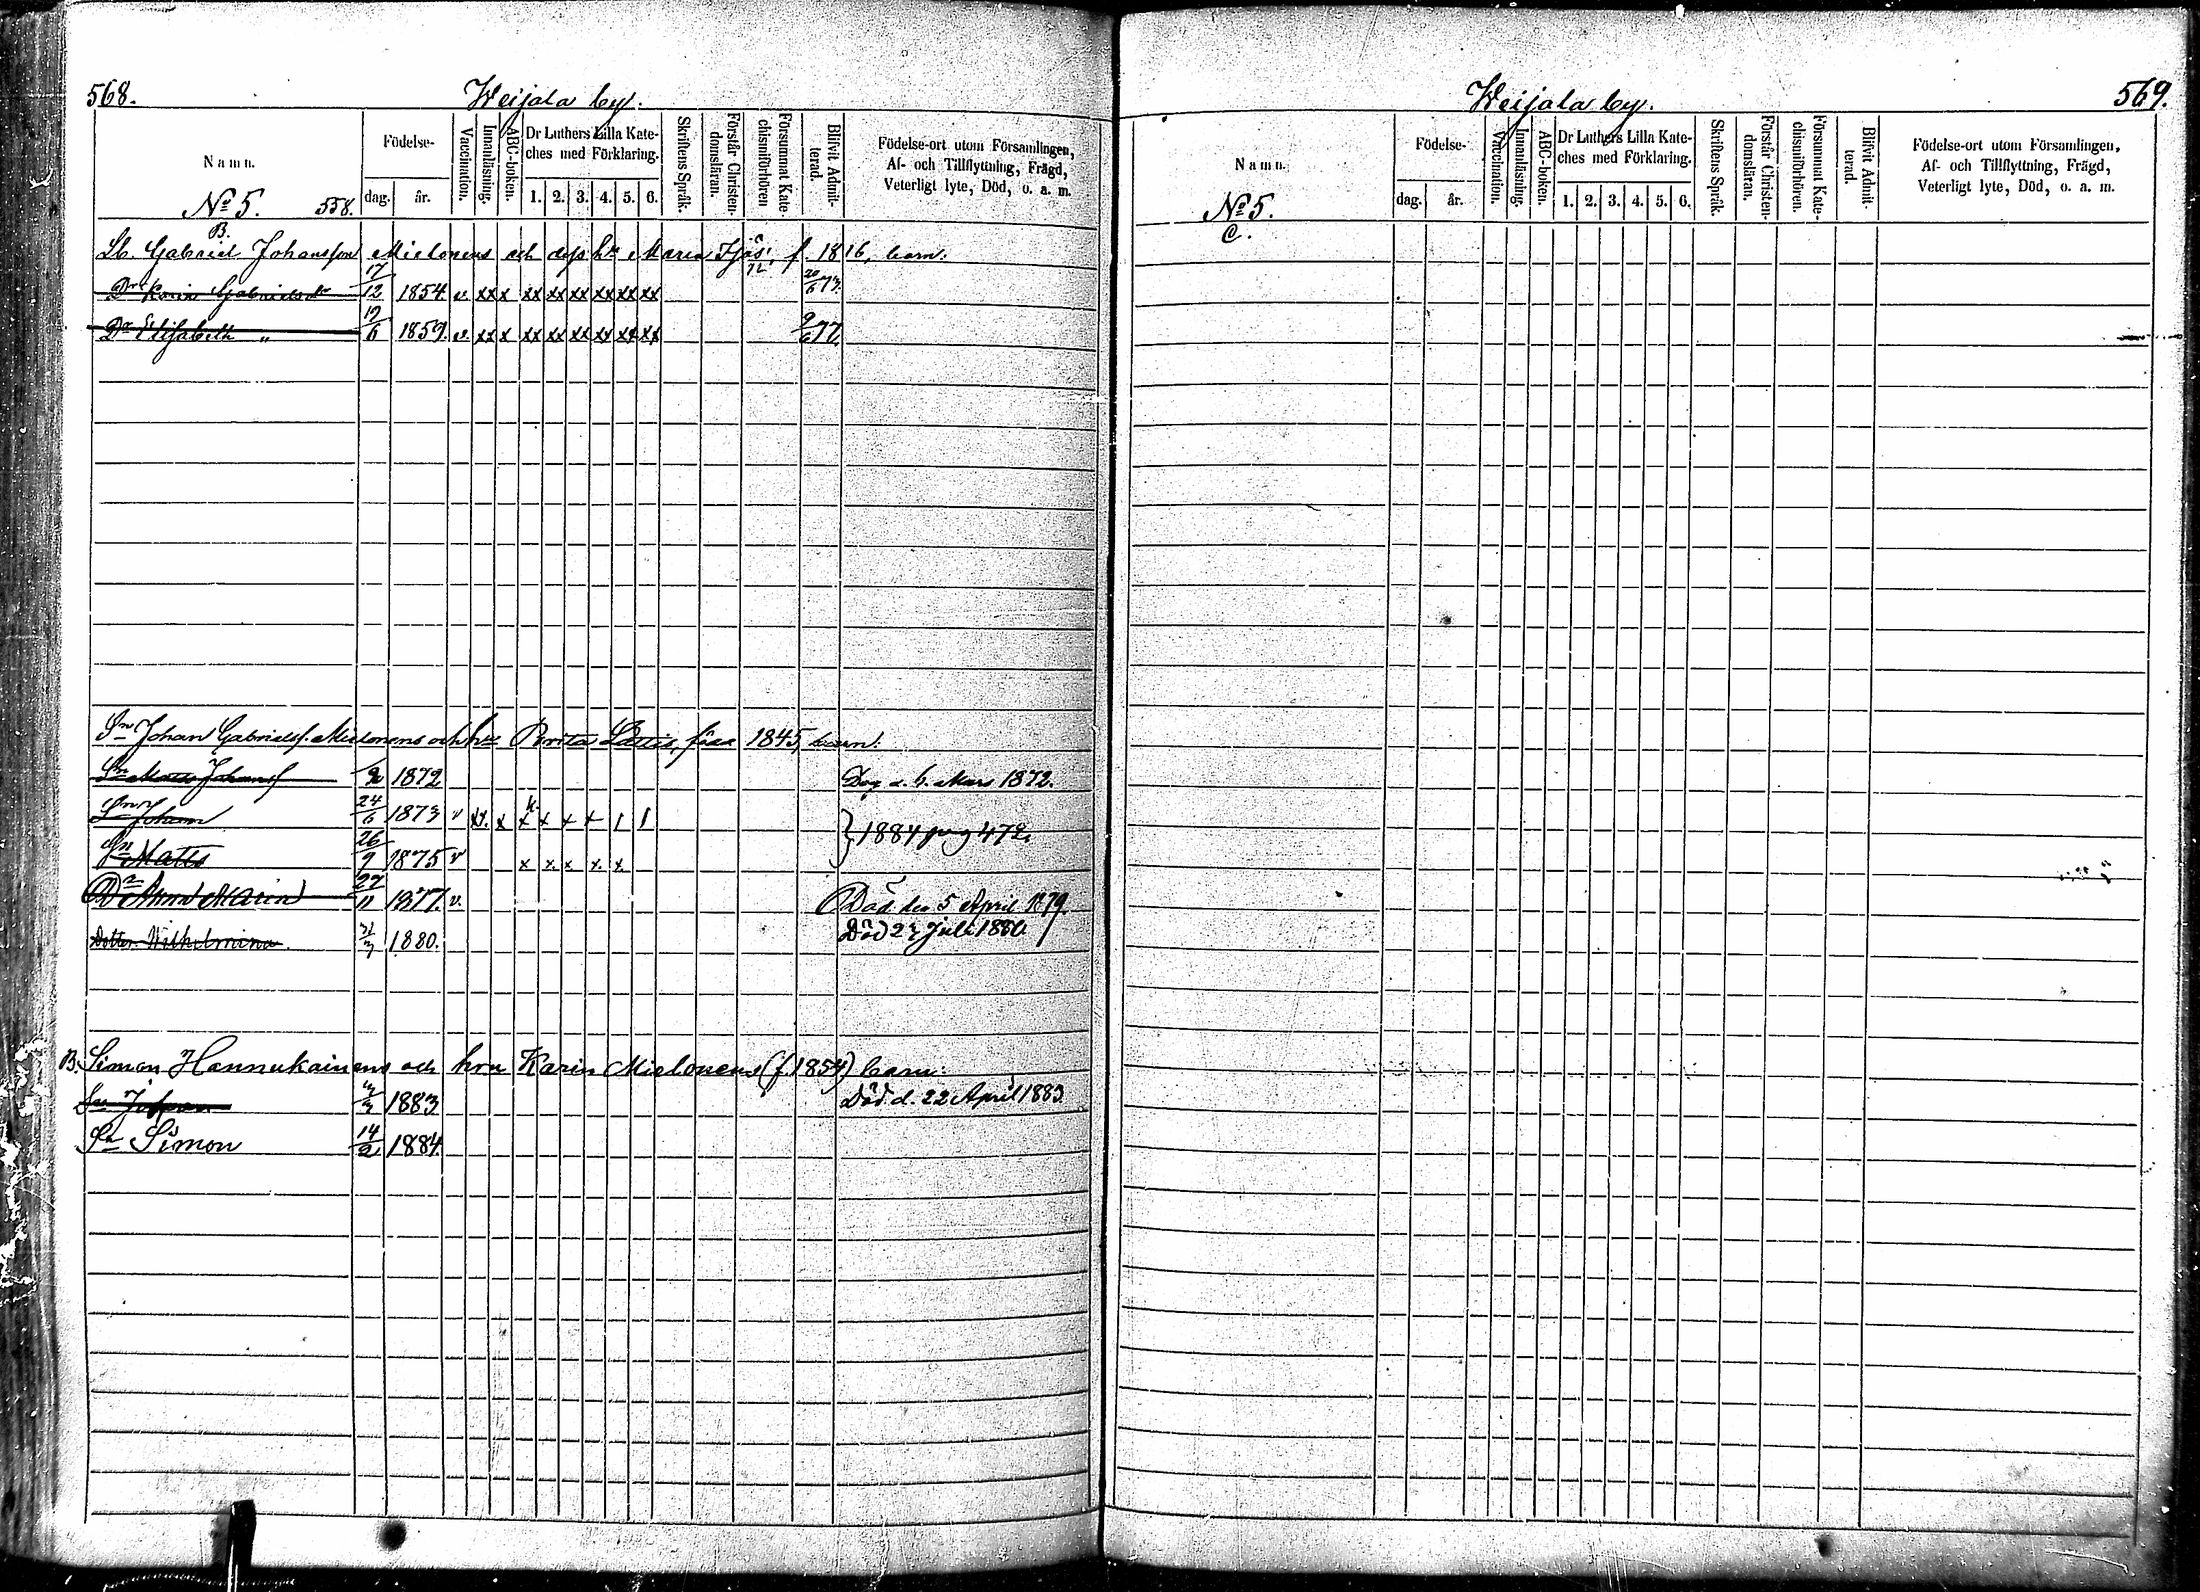 568. Weijala by.
Namn. Födelse- dag. år. Vaccination. Innanläsning. ABC-boken. Dr Luthers Lilla Kateches med Förklaring. 1. 2. 3. 4. 5. 6. Skriftens Språk. Förstår Christendomsläran. Försummat Katechismiförhören Blifvit Admitterad. Födelse-ort utom Församlingen, Af- och Tillflyttning, Frägd, Veterligt lyte, Död, o. a. m.
No 5. 558.
B.
Lb. Gabriel Johansson Mielonens och dess hu Maria f. 1816, barn:
Dr Karin Gabrielsdr 17/12 1854. v. xx x xx xx xx xx xx xx 20/6 73.
Dr Elisabeth " 17/6 1857. v. xx x xx xx xx xx xx xx 9/6 77.
Sn Johan Gabrielsf. Mielonens och hu Brita Lättis, född 1845, barn:
Sn Matts Johansf 1872 Dog d. 6. Mars 1872.
Sn Johan 24/6 1873 v xx. x x x x x 1 1 } 1884 pag 472.
Sn Matts 26/9 1875 v x x x x x
Dr Anna Maria 27/11 1877. v. Död den 5 April 1879.
Dotter Wilhelmina 1880. Död 27 Juli 1880
B. Simon Hannukainens och hru Karin Mielonens (f. 1854) barn:
Sn Johan 1883 Död. d. 22 April 1883
Sn Simon 14/2 1884.
Weijala by. 569.
Namn. Födelse- dag. år. Vaccination. Innanläsning. ABC-boken. Dr Luthers Lilla Kateches med Förklaring. 1. 2. 3. 4. 5. 6. Skriftens Språk. Förstår Christendomsläran. Försummat Katechismiförhören. Blifvit Admitterad. Födelse-ort utom Församlingen, Af- och Tillflyttning, Frägd, Veterligt lyte, Död, o. a. m.
No 5.
C.